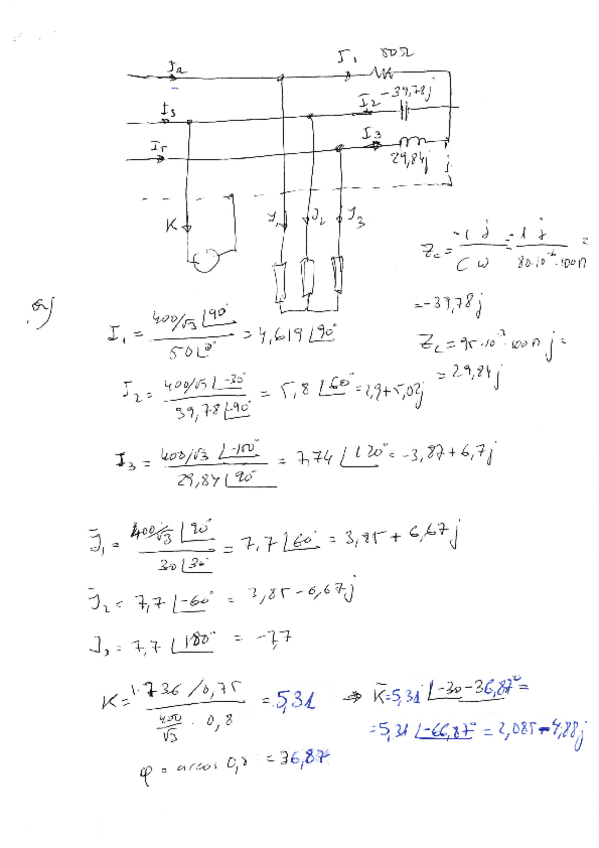 I₁ 80Ω
I_R
-39,78j
I₂
I_S
I₃
I_T
29,84j
K J₁ J₂ J₃
Z_C = -1 j / Cω = -1 j / 80·10⁻⁶·100π =
= -39,78j
a)
I₁ = 400/√3 ∠90° / 50∠0° = 4,619 ∠90°
Z_L = 95·10⁻³·100π j =
= 29,84j
I₂ = 400/√3 ∠-30° / 39,78∠-90° = 5,8 ∠60° = 2,9+5,02j
I₃ = 400/√3 ∠-150° / 29,84∠90° = 7,74 ∠120° = -3,87+6,7j
J₁ = 400/√3 ∠90° / 30∠30° = 7,7 ∠60° = 3,85 + 6,67j
J₂ = 7,7 ∠-60° = 3,85 - 6,67j
J₃ = 7,7 ∠180° = -7,7
K = 1·736/0,75 / 400/√3 · 0,8 = 5,31 ⇒ K̄ = 5,31 ∠-30-36,87° =
= 5,31 ∠-66,87° = 2,085-4,88j
φ = arcos 0,8 = 36,87